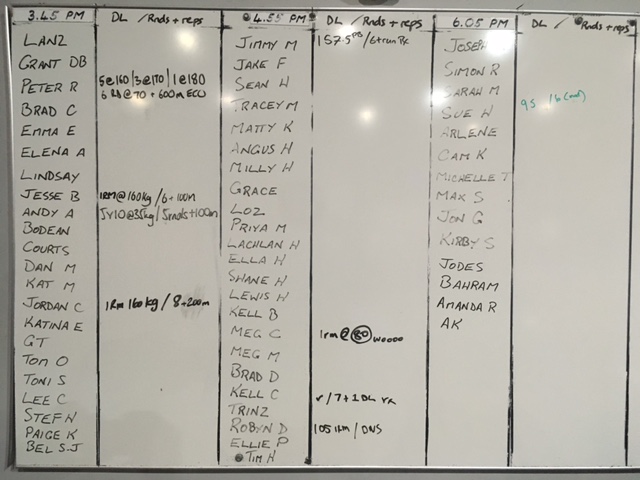 3.45 PM DL / Rnds + reps
LANZ
GRANT DB
PETER R 5@160/3@170/1@180
6 Rds @70 + 600m
BRAD C
EMMA E
ELENA A
LINDSAY
JESSE B 1RM@160kg/6+100m
ANDY A 5x10@35kg/5rnds+100m
BODEAN
COURTS
DAN M
KAT M
JORDAN C 1Rm 160kg / 8+200m
KATINA E
GT
TOM O
TONI S
LEE C
STEF N
PAIGE K
BEL S.J
4.55 PM DL / Rnds + reps
JIMMY M 157.5PB/6+run
JAKE F
SEAN H
TRACEY M
MATTY K
ANGUS H
MILLY H
GRACE
LOZ
PRIYA M
LACHLAN H
ELLA H
SHANE H
LEWIS H
KELL B
MEG C 1rm @ 80 woooo
MEG M
BRAD D
KELL C ✓/7+1DL
TRINZ
ROBYN D 105 1rm / DNS
ELLIE P
TIM H
6.05 PM DL / Rnds + reps
JOSEPH
SIMON R
SARAH M
SUE W 95 16
ARLENE
CAM K
MICHELLE T
MAX S
JON G
KIRBY S
JODES
BAHRAM
AMANDA R
AK